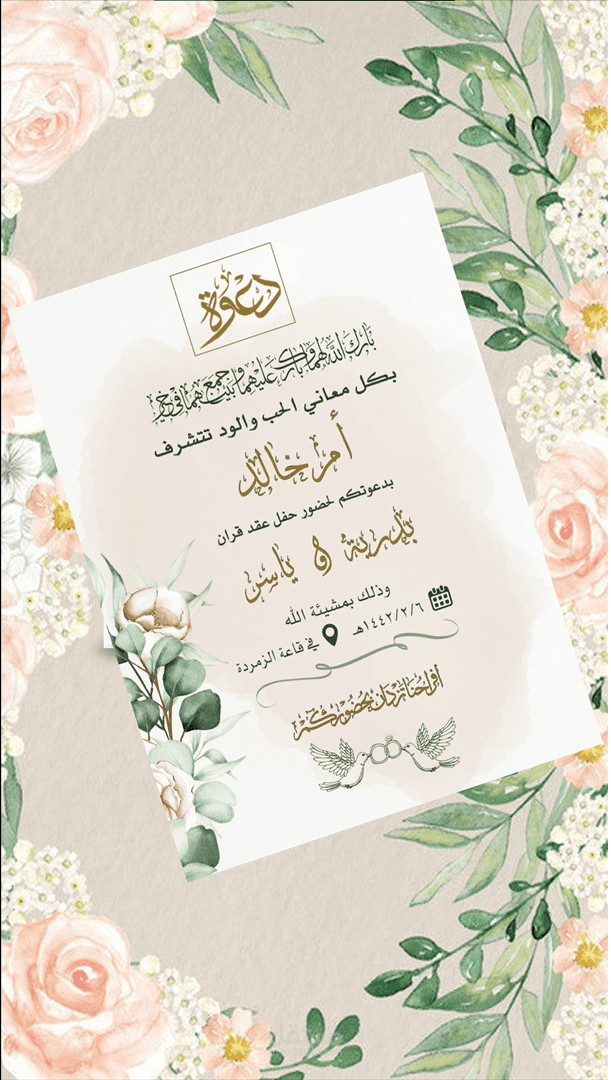 دعوة
بارك الله لهما وبارك عليهما وجمع بينهما في خير
بكل معاني الحب والود تتشرف
أم خالد
بدعوتكم لحضور حفل عقد قران
بدرية و ياسر
وذلك بمشيئة الله
١٤٤٢/٢/٦هـ
في قاعة الزمردة
أفراحنا تزدان بحضوركم